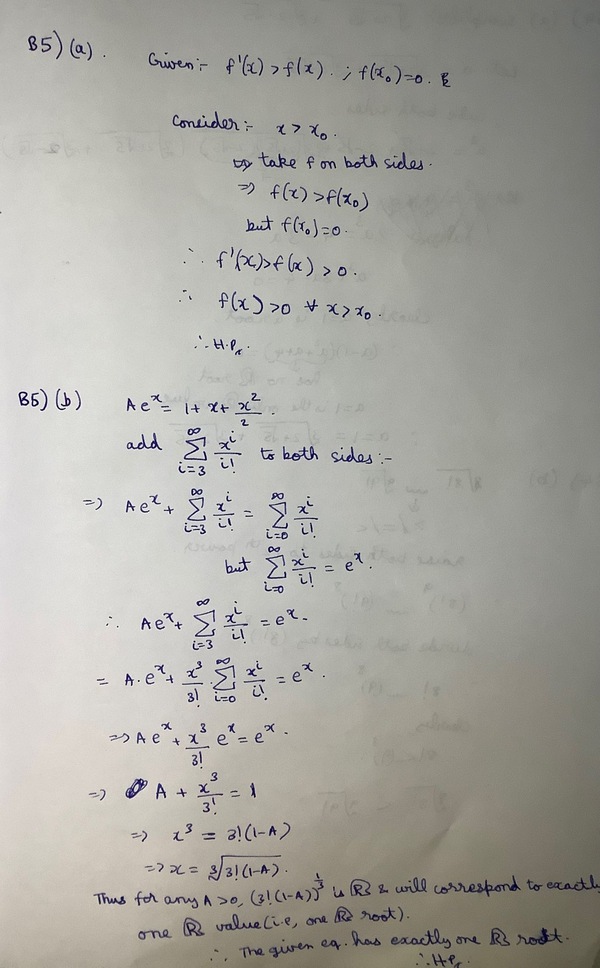 B5) (a). Given :- f'(x) > f(x). ; f(x₀)=0.
Consider :- x > x₀.
take f on both sides.
⇒ f(x) > f(x₀)
but f(x₀)=0.
∴ f'(x) > f(x) > 0.
∴ f(x) > 0 ∀ x > x₀.
∴ H.P.
B5) (b) Ae^x = 1 + x + x²/2.
add ∑_{i=3}^{∞} x^i/i! to both sides :-
⇒ Ae^x + ∑_{i=3}^{∞} x^i/i! = ∑_{i=0}^{∞} x^i/i!
but ∑_{i=0}^{∞} x^i/i! = e^x.
∴ Ae^x + ∑_{i=3}^{∞} x^i/i! = e^x.
= A.e^x + x³/3! . ∑_{i=0}^{∞} x^i/i! = e^x.
⇒ Ae^x + x³/3! e^x = e^x.
⇒ A + x³/3! = 1
⇒ x³ = 3!(1-A)
⇒ x = ∛(3!(1-A)).
Thus for any A > 0, (3!(1-A))^{1/3} is ℝ & will correspond to exactly
one ℝ value (i.e, one ℝ root).
∴ The given eq. has exactly one ℝ root.
∴ H.P.